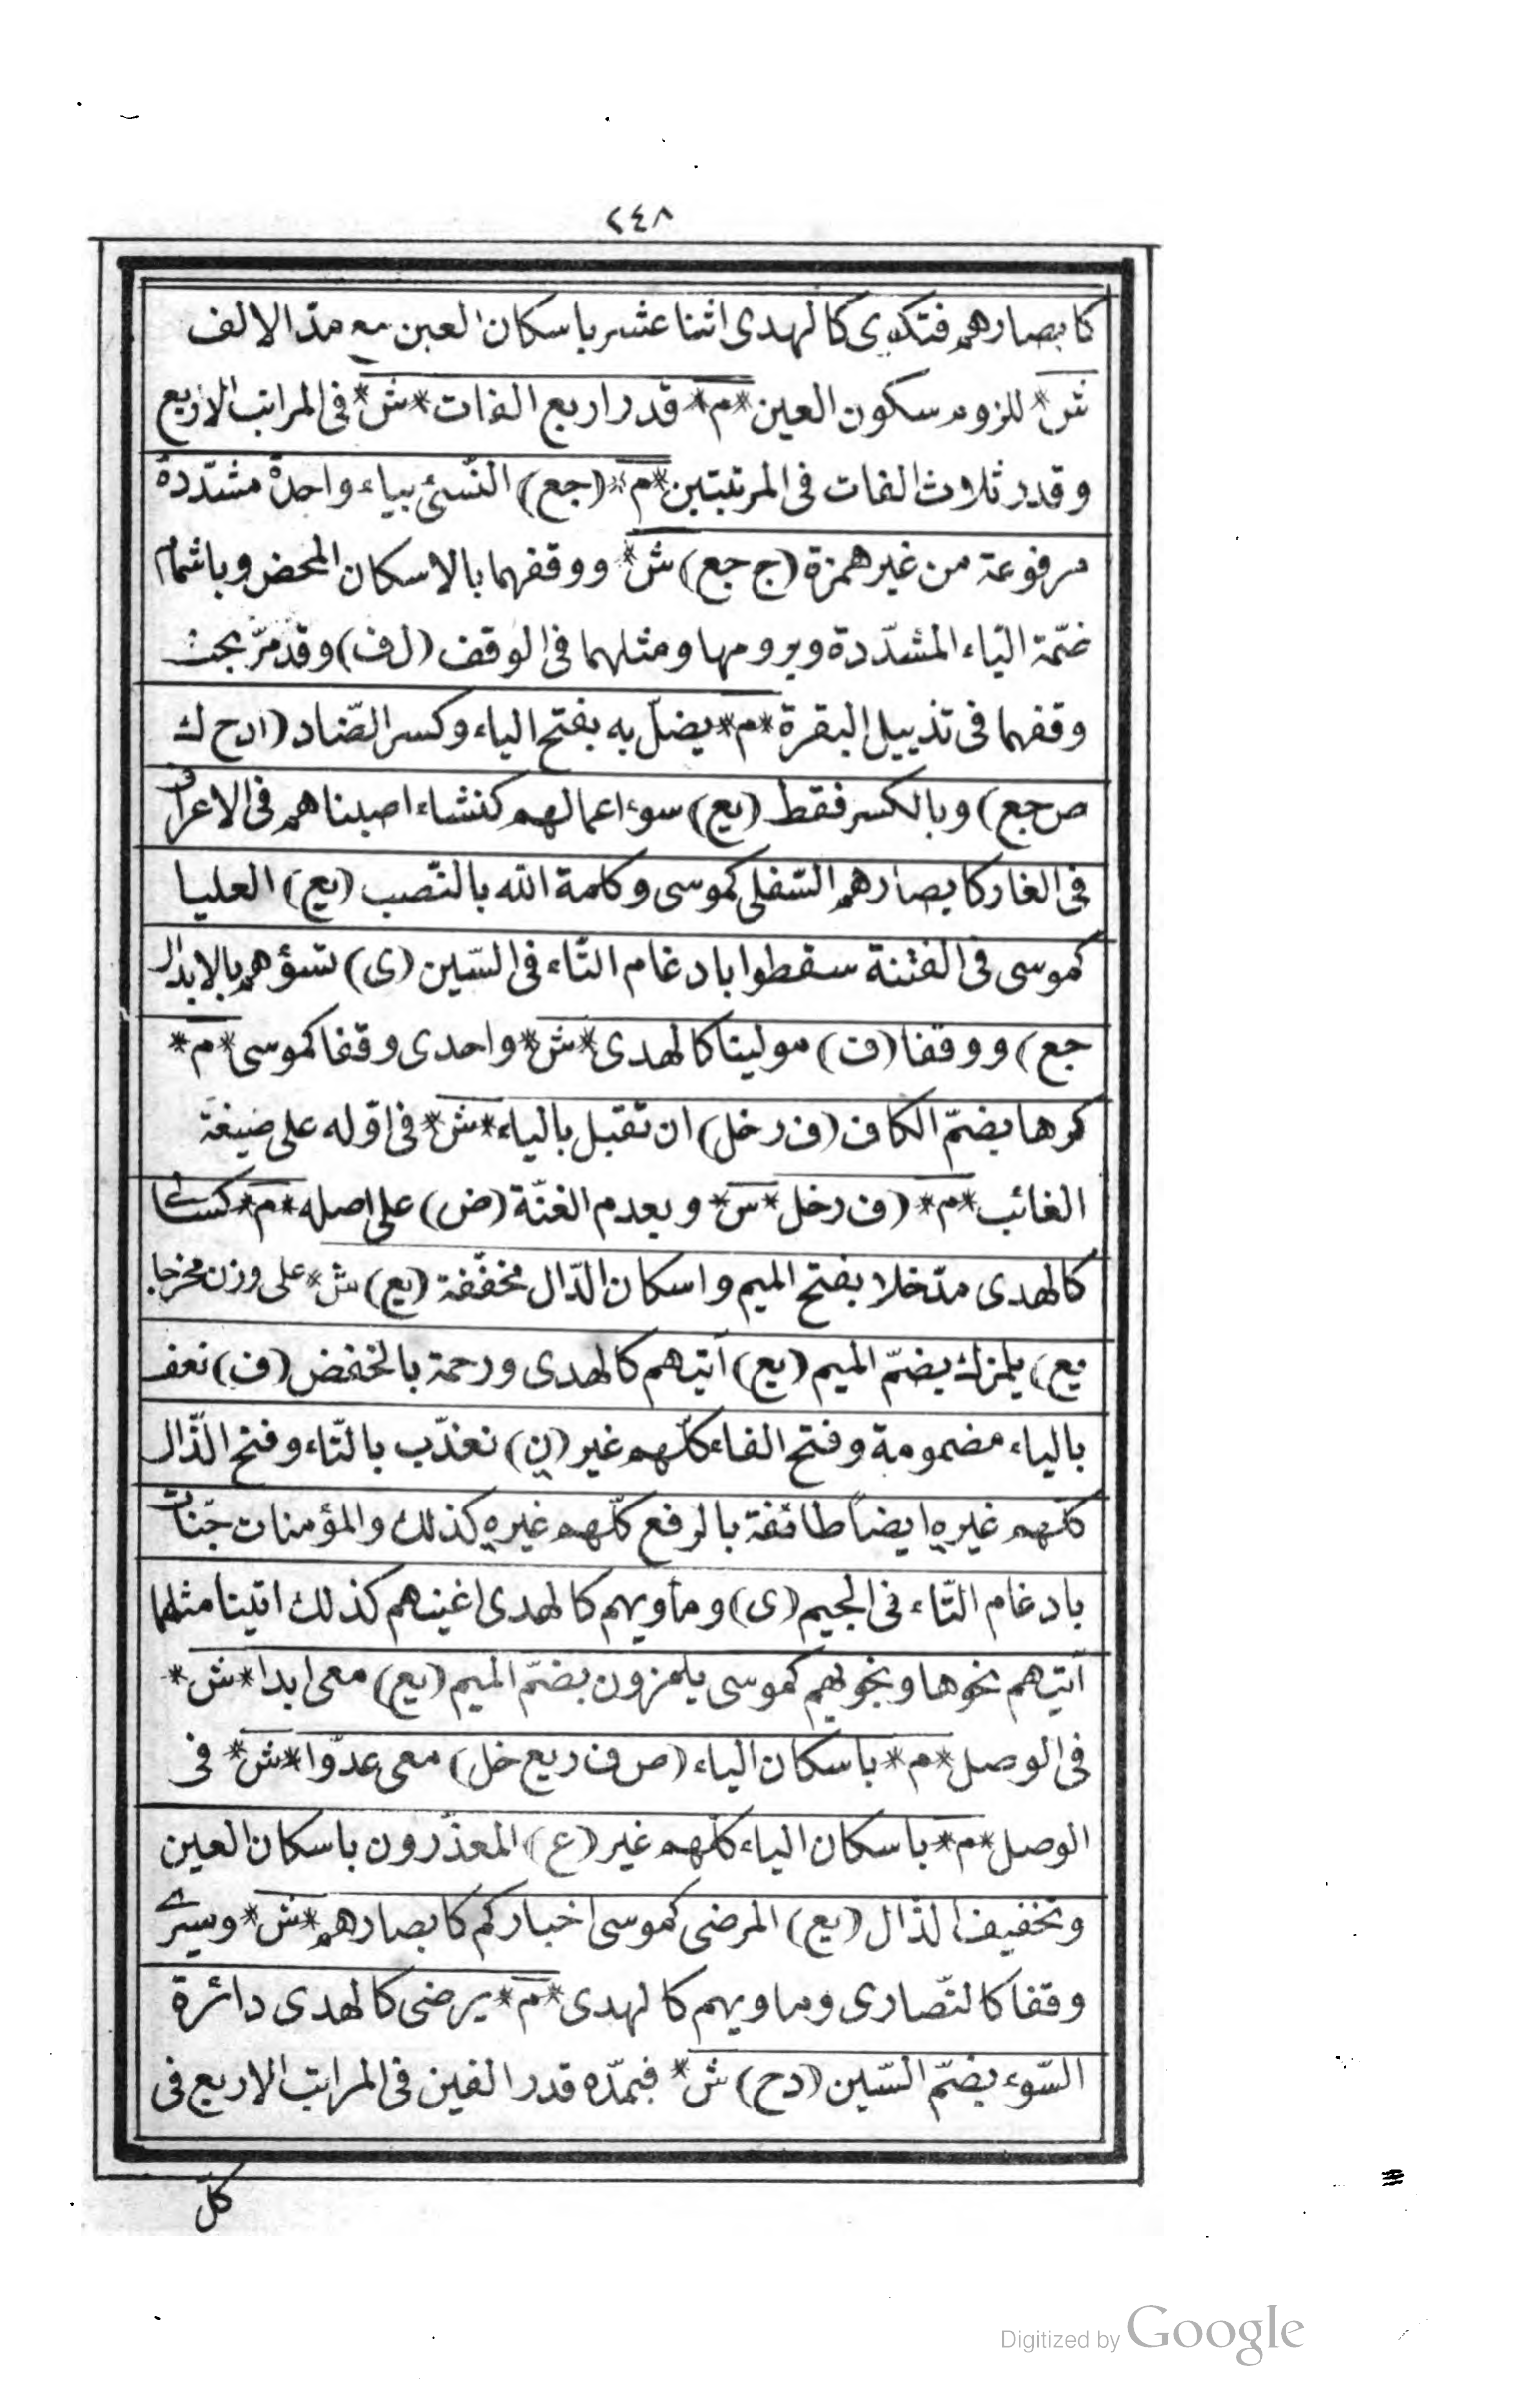 ٢٤٨
كابصارهم فتكوى كالهدى اثنا عشر باسكان العين مع مدّ الالف
ش* للزوم سكون العين *م* قدر اربع الفات *ش* فى المراتب الاربع
وقدر ثلاث الفات فى المرتبتين *م* (جع) النّسىّ بياء واحدة مشدّدة
مرفوعة من غير همزة (ج جع) ش* ووقفهما بالاسكان المحض وباشمام
ضمّة الياء المشدّدة وبرومها ومثلهما فى الوقف (ل ف) وقد مرّ بحث
وقفهما فى تذييل البقرة *م* يضلّ به بفتح الياء وكسر الضّاد (ا د ح ك
ص جع) وبالكسر فقط (يع) سوء اعمالهم كنشاء اصبناهم فى الاعراف
فى الغار كابصارهم السّفلى كموسى وكلمة الله بالنّصب (يع) العليا
كموسى فى الفتنة سقطوا بادغام التّاء فى السّين (ى) تسؤهم بالابدال
جع) ووقفا (ف) موليٰنا كالهدى *ش* واحدى وقفا كموسى *م*
كرها بضمّ الكاف (ف ر خل) ان تقبل بالياء *ش* فى اوّله على صيغة
الغائب *م* (ف ر خل *ش* وبعدم الغنّة (ض) على اصله *م* كسالى
كالهدى مدّخلا بفتح الميم واسكان الدّال مخفّفة (يع) ش* على وزن مخرجا
يع) يلمزك بضمّ الميم (يع) آتيهم كالهدى ورحمة بالخفض (ف) نعف
بالياء مضمومة وفتح الفاء كلّهم غير (ن) نعذّب بالتّاء وفتح الذّال
كلّهم غيره ايضاً طائفة بالرفع كلّهم غيره كذلك والمؤمنات جنّات
بادغام التّاء فى الجيم (ى) ومأويهم كالهدى اغنيهم كذلك اتينا مثلها
آتيهم نحوها ونجويهم كموسى يلمزون بضمّ الميم (يع) معى ابدا *ش*
فى الوصل *م* باسكان الياء (ص ف ر يع خل) معى عدوّا *ش* فى
الوصل *م* باسكان الياء كلّهم غير (ع) المعذّرون باسكان العين
وتخفيف الذّال (يع) المرضى كموسى اخباركم كابصارهم *ش* وسيرى
وقفا كالنّصارى وماويهم كالهدى *م* يرضى كالهدى دائرة
السّوء بضمّ السّين (د ح) ش* فبمدّه قدر الفين فى المراتب الاربع فى
كلّ
Digitized by Google